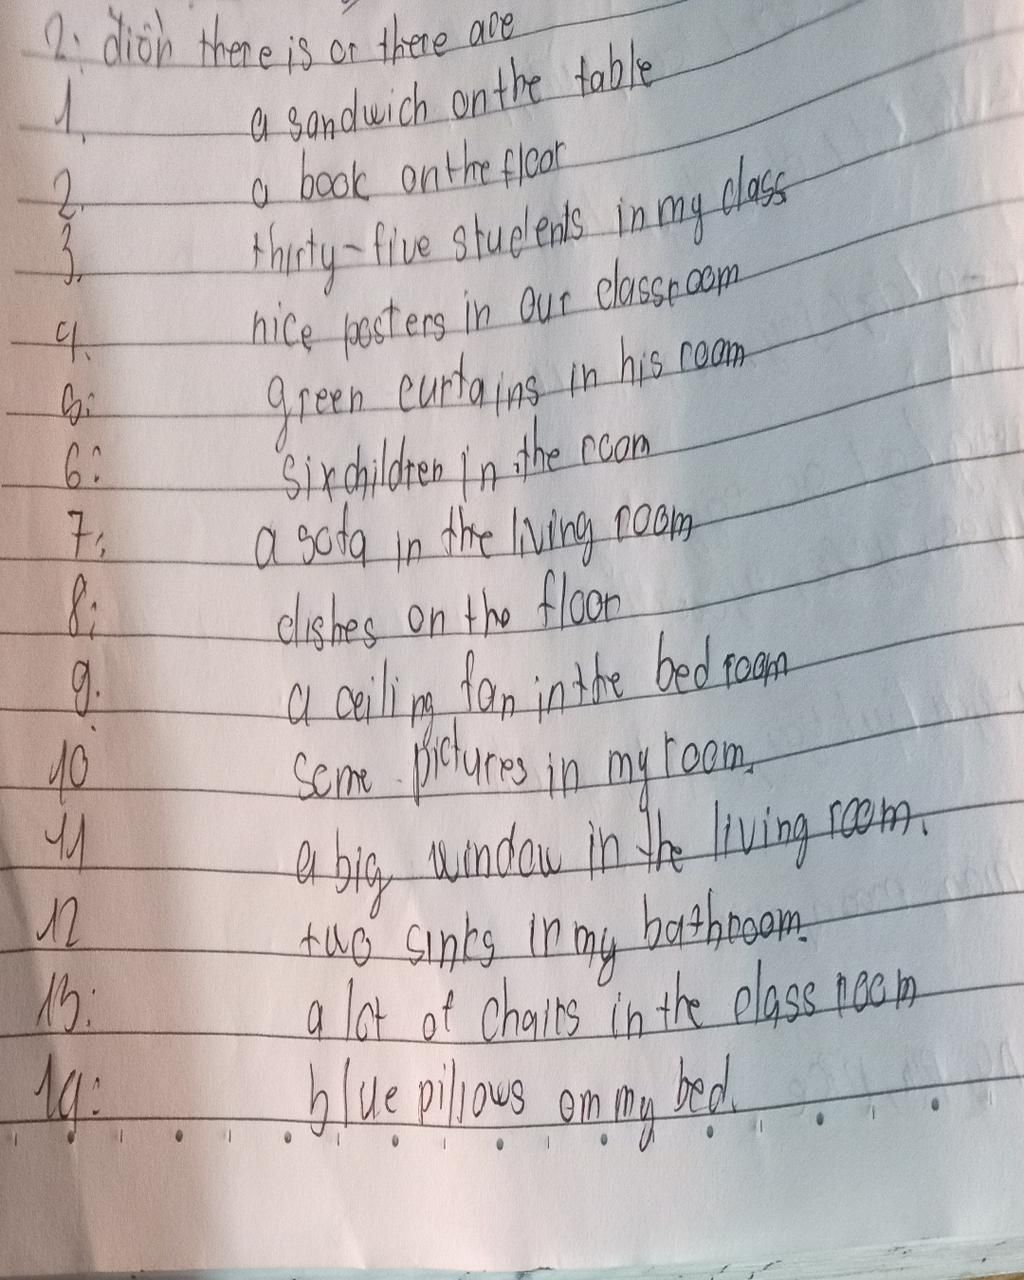 2: điền there is or there are
1. a sandwich on the table
2. a book on the floor
3. thirty-five students in my class
4. nice posters in our classroom
5: green curtains in his room
6: six children in the room
7: a sofa in the living room
8: dishes on the floor
9. a ceiling fan in the bed room
10 some pictures in my room.
11 a big window in the living room.
12 two sinks in my bathroom.
13: a lot of chairs in the class room
14: blue pillows on my bed.